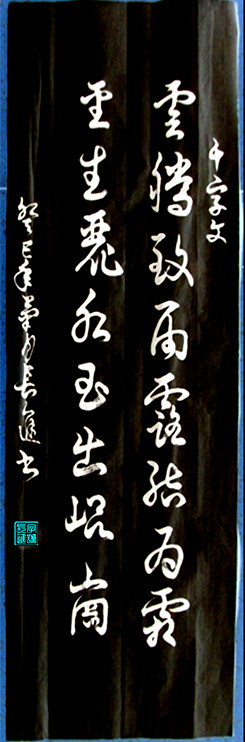 千字文
雲騰致雨露結為霜
金生麗水玉出崐崗
癸巳年
書